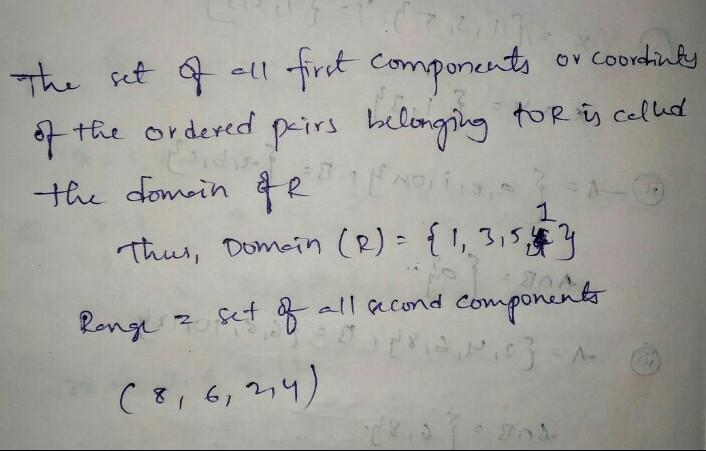 The set of all first components or coordinats
of the ordered pairs belonging to R is called
the domain of R
Thus, Domain (R) = { 1, 3, 5, 1 }
Range = set of all second components
( 8, 6, 2, 4 )